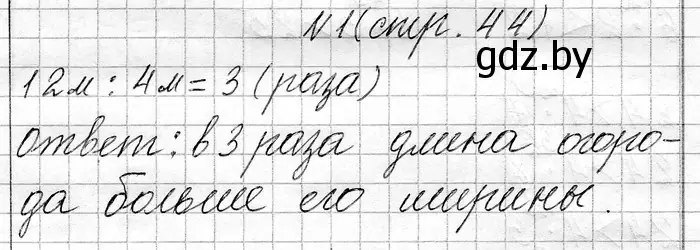 N1(стр. 44)
gdz.by
12м : 4м = 3 (раза)
Ответ: в 3 раза длина огоро-
да больше его ширины.